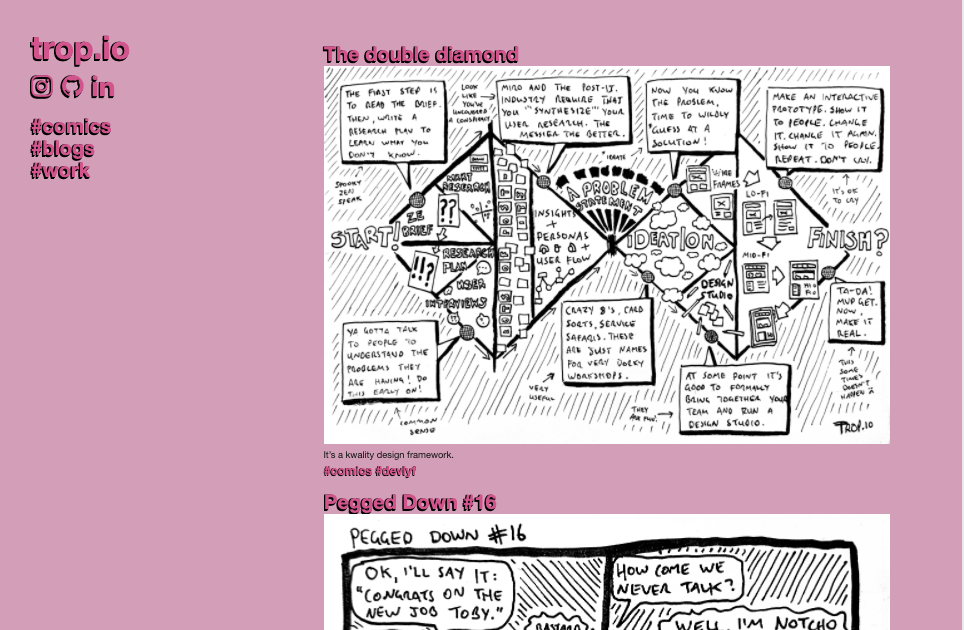 trop.io
in
#comics
#blogs
#work
The double diamond
THE FIRST STEP IS
TO READ THE BRIEF.
THEN, WRITE A
RESEARCH PLAN TO
LEARN WHAT YOU
DON'T KNOW.
LOOK
LIKE
YOU'VE
UNCOVERED
A CONSPIRACY
MIRO AND THE POST-IT
INDUSTRY REQUIRE THAT
YOU "SYNTHESIZE" YOUR
USER RESEARCH. THE
MESSIER THE BETTER.
NOW YOU KNOW
THE PROBLEM,
TIME TO WILDLY
GUESS AT A
SOLUTION!
*IDEATE
MAKE AN INTERACTIVE
PROTOTYPE. SHOW IT
TO PEOPLE. CHANGE
IT. CHANGE IT AGAIN.
SHOW IT TO PEOPLE.
REPEAT. DON'T CRY.
SPOOKY
ZEN
SPEAK
IT'S OK
TO CRY
START!
ZE
BRIEF
??
!!?
RESEARCH
RESEARCH
PLAN
USER
INTERVIEWS
INSIGHTS
+
PERSONAS
+
USER FLOW
A PROBLEM
STATEMENT
IDEATION
WIRE
FRAMES
LO-FI
MID-FI
DESIGN
STUDIO
FINISH?
TA-DA!
MVP GET.
NOW,
MAKE IT
REAL.
THIS
SOME
TIMES
DOESN'T
HAPPEN
YA GOTTA TALK
TO PEOPLE TO
UNDERSTAND THE
PROBLEMS THEY
ARE HAVING! DO
THIS EARLY ON!
COMMON
SENSE
CRAZY 8'S, CARD
SORTS, SERVICE
SAFARIS. THESE
ARE JUST NAMES
FOR VERY DORKY
WORKSHOPS.
VERY
USEFUL
AT SOME POINT IT'S
GOOD TO FORMALLY
BRING TOGETHER YOUR
TEAM AND RUN A
DESIGN STUDIO.
THEY
ARE FUN.
TROP.IO
It's a kwality design framework.
#comics #devlyf
Pegged Down #16
PEGGED DOWN #16
OK, I'LL SAY IT:
"CONGRATS ON THE
NEW JOB TOBY."
HOW COME WE
NEVER TALK?
WELL, I'M NOTCHO